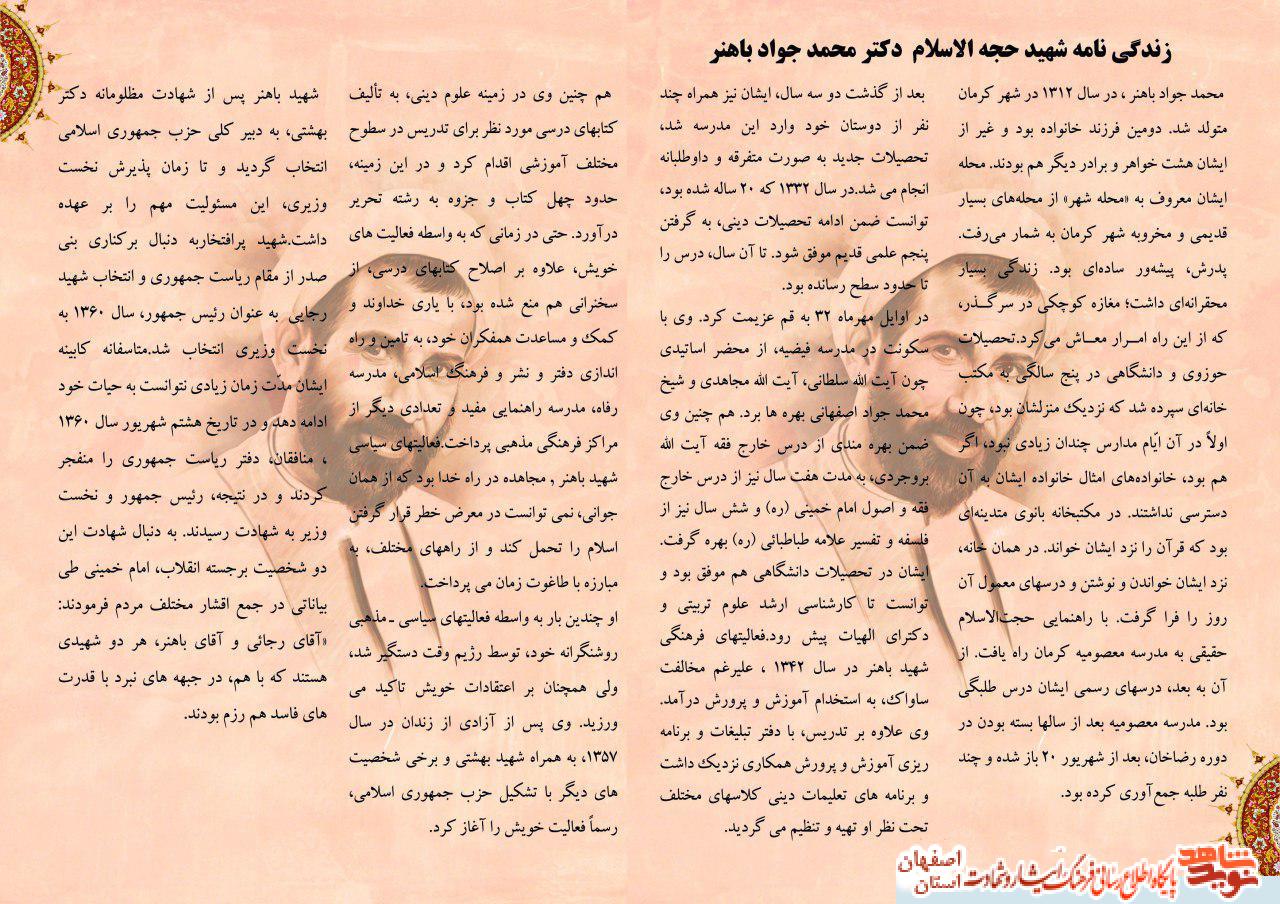 زندگی نامه شهید حجه الاسلام دکتر محمد جواد باهنر
محمد جواد باهنر ، در سال ۱۳۱۲ در شهر کرمان
متولد شد. دومین فرزند خانواده بود و غیر از
ایشان هشت خواهر و برادر دیگر هم بودند. محله
ایشان معروف به «محله شهر» از محله‌های بسیار
قدیمی و مخروبه شهر کرمان به شمار می‌رفت.
پدرش، پیشه‌ور ساده‌ای بود. زندگی بسیار
محقرانه‌ای داشت؛ مغازه کوچکی در سرگـذر،
که از این راه امـرار معـاش می‌کرد.تحصیلات
حوزوی و دانشگاهی در پنج سالگی به مکتب
خانه‌ای سپرده شد که نزدیک منزلشان بود، چون
اولاً در آن ایّام مدارس چندان زیادی نبود، اگر
هم بود، خانواده‌های امثال خانواده ایشان به آن
دسترسی نداشتند. در مکتبخانه بانوی متدینه‌ای
بود که قرآن را نزد ایشان خواند. در همان خانه،
نزد ایشان خواندن و نوشتن و درسهای معمول آن
روز را فرا گرفت. با راهنمایی حجت‌الاسلام
حقیقی به مدرسه معصومیه کرمان راه یافت. از
آن به بعد، درسهای رسمی ایشان درس طلبگی
بود. مدرسه معصومیه بعد از سالها بسته بودن در
دوره رضاخان، بعد از شهریور ۲۰ باز شده و چند
نفر طلبه جمع‌آوری کرده بود.
بعد از گذشت دو سه سال، ایشان نیز همراه چند
نفر از دوستان خود وارد این مدرسه شد،
تحصیلات جدید به صورت متفرقه و داوطلبانه
انجام می شد.در سال ۱۳۳۲ که ۲۰ ساله شده بود،
توانست ضمن ادامه تحصیلات دینی، به گرفتن
پنجم علمی قدیم موفق شود. تا آن سال، درس را
تا حدود سطح رسانده بود.
در اوایل مهرماه ۳۲ به قم عزیمت کرد. وی با
سکونت در مدرسه فیضیه، از محضر اساتیدی
چون آیت الله سلطانی، آیت الله مجاهدی و شیخ
محمد جواد اصفهانی بهره ها برد. هم چنین وی
ضمن بهره مندی از درس خارج فقه آیت الله
بروجردی، به مدت هفت سال نیز از درس خارج
فقه و اصول امام خمینی (ره) و شش سال نیز از
فلسفه و تفسیر علامه طباطبائی (ره) بهره گرفت.
ایشان در تحصیلات دانشگاهی هم موفق بود و
توانست تا کارشناسی ارشد علوم تربیتی و
دکترای الهیات پیش رود.فعالیتهای فرهنگی
شهید باهنر در سال ۱۳۴۲ ، علیرغم مخالفت
ساواک، به استخدام آموزش و پرورش درآمد.
وی علاوه بر تدریس، با دفتر تبلیغات و برنامه
ریزی آموزش و پرورش همکاری نزدیک داشت
و برنامه های تعلیمات دینی کلاسهای مختلف
تحت نظر او تهیه و تنظیم می گردید.
هم چنین وی در زمینه علوم دینی، به تألیف
کتابهای درسی مورد نظر برای تدریس در سطوح
مختلف آموزشی اقدام کرد و در این زمینه،
حدود چهل کتاب و جزوه به رشته تحریر
درآورد. حتی در زمانی که به واسطه فعالیت های
خویش، علاوه بر اصلاح کتابهای درسی، از
سخنرانی هم منع شده بود، با یاری خداوند و
کمک و مساعدت همفکران خود، به تامین و راه
اندازی دفتر و نشر و فرهنگ اسلامی، مدرسه
رفاه، مدرسه راهنمایی مفید و تعدادی دیگر از
مراکز فرهنگی مذهبی پرداخت.فعالیتهای سیاسی
شهید باهنر , مجاهده در راه خدا بود که از همان
جوانی، نمی توانست در معرض خطر قرار گرفتن
اسلام را تحمل کند و از راههای مختلف، به
مبارزه با طاغوت زمان می پرداخت.
او چندین بار به واسطه فعالیتهای سیاسی ـ مذهبی
روشنگرانه خود، توسط رژیم وقت دستگیر شد،
ولی همچنان بر اعتقادات خویش تاکید می
ورزید. وی پس از آزادی از زندان در سال
۱۳۵۷، به همراه شهید بهشتی و برخی شخصیت
های دیگر با تشکیل حزب جمهوری اسلامی،
رسماً فعالیت خویش را آغاز کرد.
شهید باهنر پس از شهادت مظلومانه دکتر
بهشتی، به دبیر کلی حزب جمهوری اسلامی
انتخاب گردید و تا زمان پذیرش نخست
وزیری، این مسئولیت مهم را بر عهده
داشت.شهید پرافتخاربه دنبال برکناری بنی
صدر از مقام ریاست جمهوری و انتخاب شهید
رجایی به عنوان رئیس جمهور، سال ۱۳۶۰ به
نخست وزیری انتخاب شد.متاسفانه کابینه
ایشان مدّت زمان زیادی نتوانست به حیات خود
ادامه دهد و در تاریخ هشتم شهریور سال ۱۳۶۰
، منافقان، دفتر ریاست جمهوری را منفجر
کردند و در نتیجه، رئیس جمهور و نخست
وزیر به شهادت رسیدند. به دنبال شهادت این
دو شخصیت برجسته انقلاب، امام خمینی طی
بیاناتی در جمع اقشار مختلف مردم فرمودند:
«آقای رجائی و آقای باهنر، هر دو شهیدی
هستند که با هم، در جبهه های نبرد با قدرت
های فاسد هم رزم بودند.
نوید شاهد
پایگاه اطلاع رسانی فرهنگ ایثار و شهادت
استان اصفهان